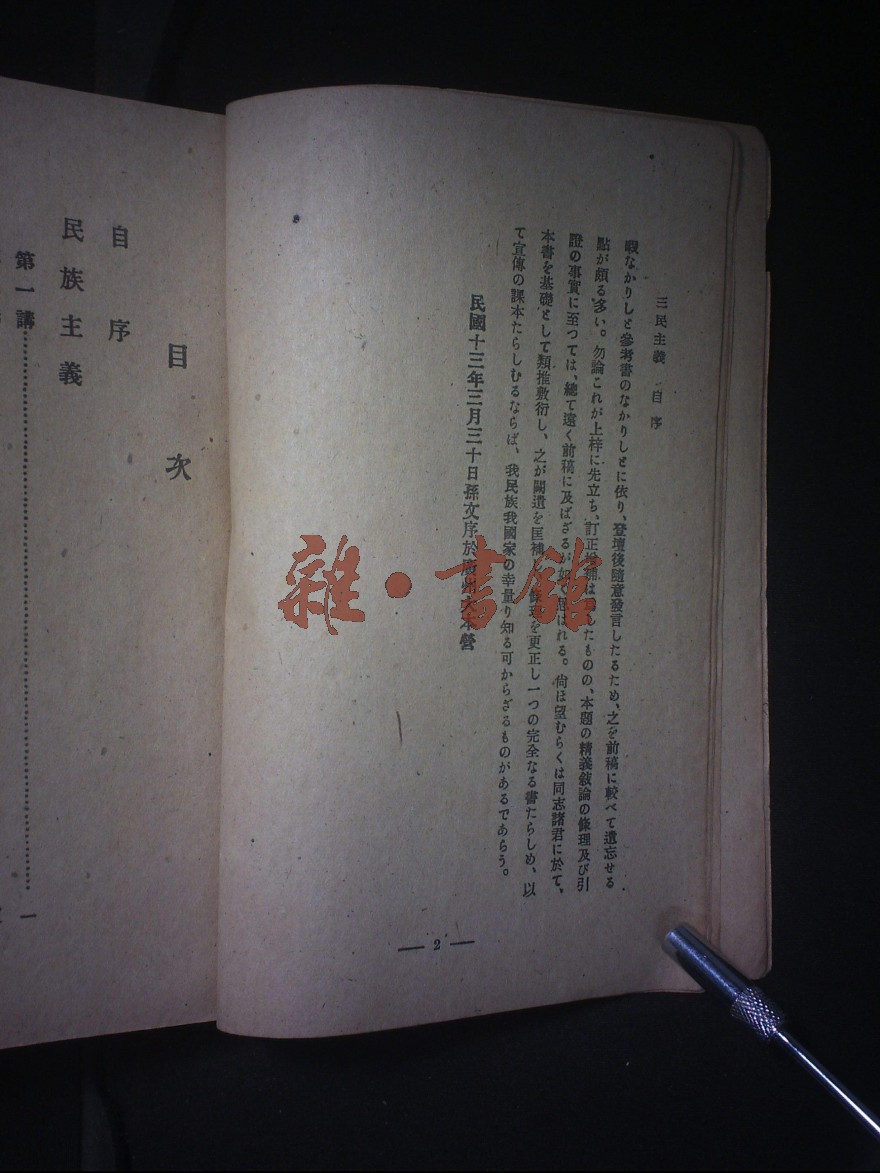 三民主義 自序
暇なかりしと參考書のなかりしとに依り、登壇後隨意發言したるため、之を前稿に較べて遺忘せる
點が頗る多い。勿論これが上梓に先立ち、訂正 は たものの、本題の精義敍論の條理及び引
證の事實に至つては、總て遠く前稿に及ばざるが如く思はれる。尙ほ望むらくは同志諸君に於て、
本書を基礎として類推敷衍し、之が闕遺を匡補し 條理を更正し一つの完全なる書たらしめ、以
て宣傳の課本たらしむるならば、我民族我國家の幸量り知る可からざるものがあるであらう。
民國十三年三月三十日孫文序於廣州大本營
— 2 —
目次
自序
民族主義
第一講 一
雜·書館